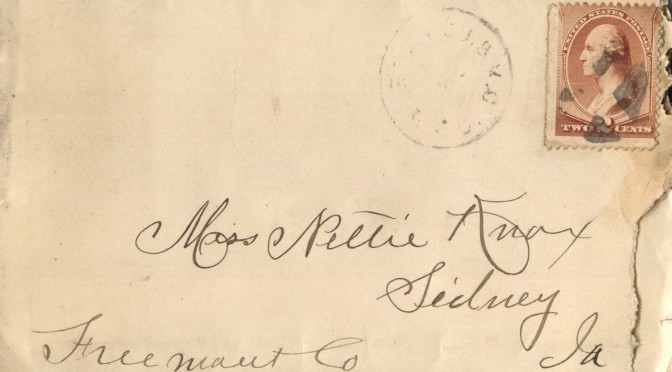 UNITED STATES POSTAGE
TWO 2 CENTS
Miss Nettie Knox
Sidney
Freemont Co Ia